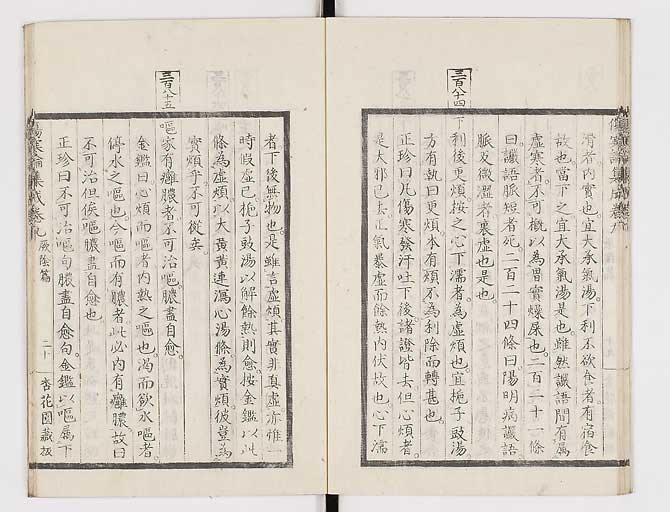 傷寒論集成卷九
滑者內實也宜大承氣湯下利不欲食者有宿食
故也當下之宜大承氣湯是也雖然讝語間有屬
虛寒者不可概以為胃實燥屎也二百二十一條
曰讝語脈短者死二百二十四條曰陽明病讝語
脈反微濇者裏虛也是也
三百八十四
下利後更煩按之心下濡者為虛煩也宜梔子豉湯
方有執曰更煩本有煩不為利除而轉甚也
正珍曰凡傷寒發汗吐下後諸證皆去但心煩者
是大邪已去正氣暴虛而餘熱內伏故也心下濡
者下後無物也是雖言虛煩其實非真虛亦惟一
時假虛已梔子豉湯以解餘熱則愈按金鑑以此
條為虛煩以大黃黃連瀉心湯條為實煩彼豈為
實煩乎不可從矣
三百八十五
嘔家有癰膿者不可治嘔膿盡自愈
金鑑曰心煩而嘔者內熱之嘔也渴而飲水嘔者
停水之嘔也今嘔而有膿者此必內有癰膿故曰
不可治但俟嘔膿盡自愈也
正珍曰不可治嘔句膿盡自愈句金鑑以嘔屬下
傷寒論集成卷九 厥陰篇 二十 杏花園藏板